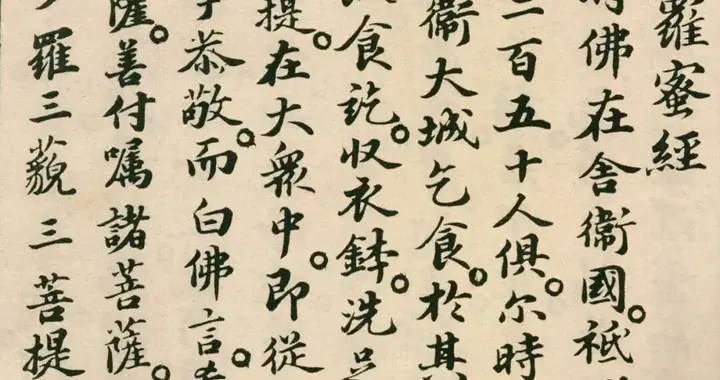 羅蜜經
佛在舍衛國。祇
二百五十人俱。尔時
衛大城乞食。於其
食訖。収衣鉢。洗足
提。在大衆中。即從
恭敬。而白佛言。希
薩。善付囑諸菩薩。
羅三藐三菩提